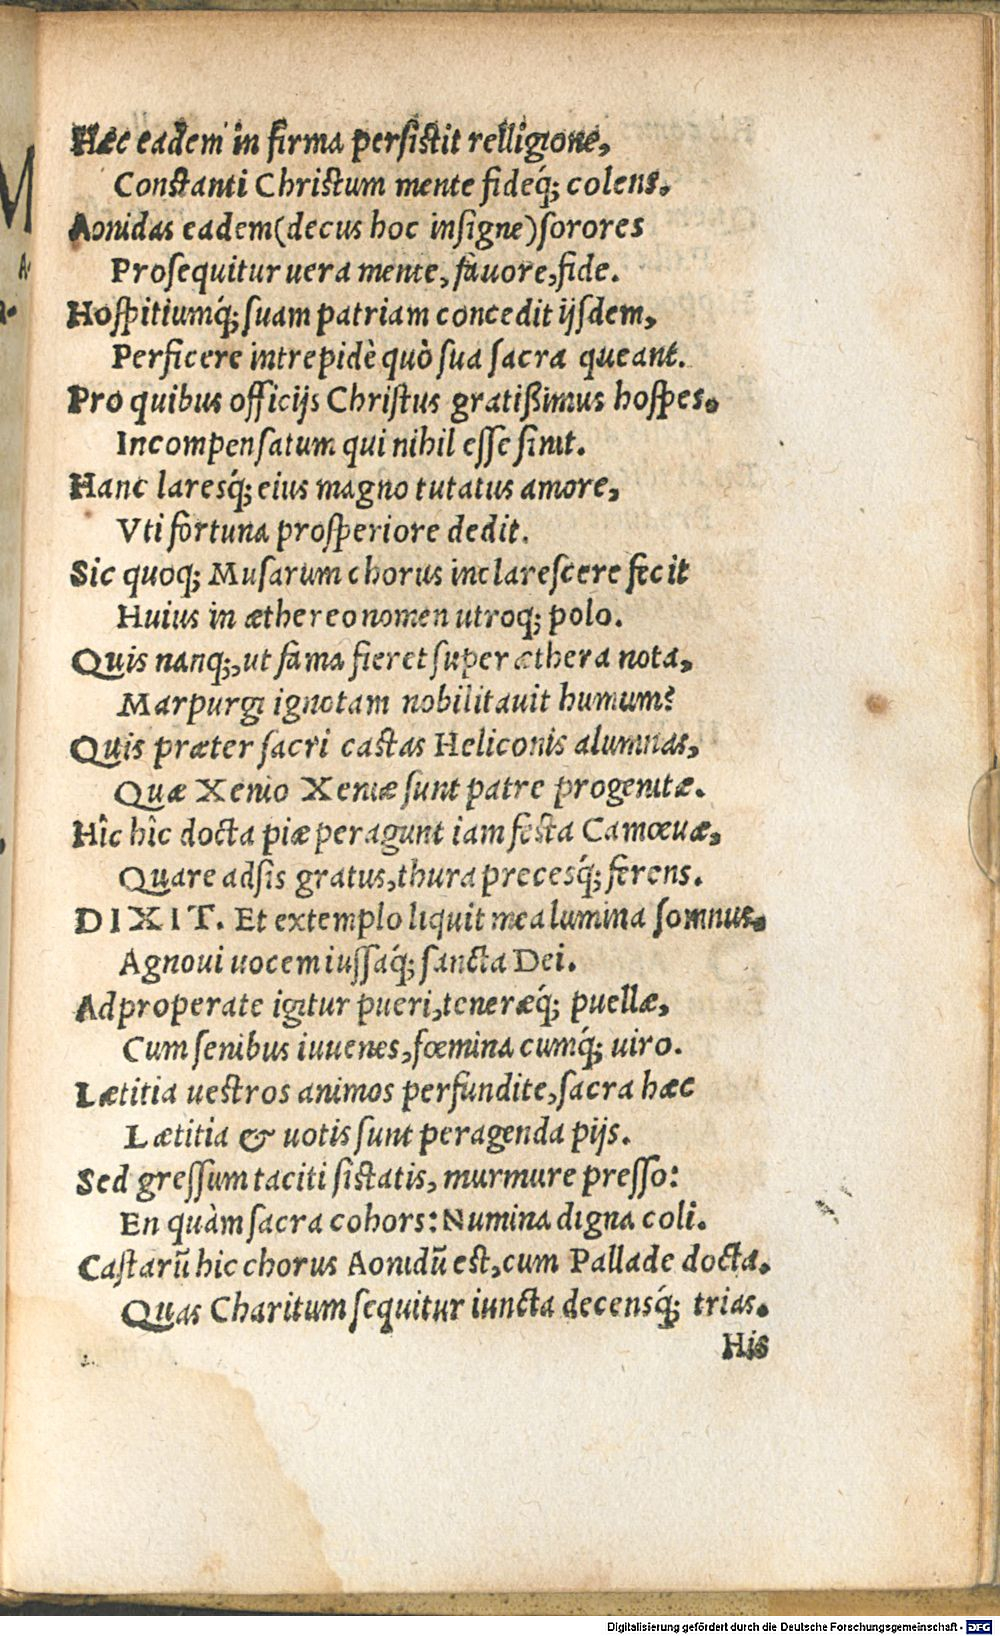 Hæc eadem in firma persistit relligione,
Constanti Christum mente fideq́; colens.
Aonidas eadem (decus hoc insigne) sorores
Prosequitur uera mente, fauore, fide.
Hospitiumq́; suam patriam concedit ijsdem,
Perficere intrepidè quò sua sacra queant.
Pro quibus officijs Christus gratißimus hospes.
Incompensatum qui nihil esse sinit.
Hanc laresq́; eius magno tutatus amore,
Vti fortuna prosperiore dedit.
Sic quoq; Musarum chorus inclarescere fecit
Huius in æthereo nomen utroq; polo.
Quis nanq;, ut fama fieret super æthera nota,
Marpurgi ignotam nobilitauit humum?
Quis præter sacri castas Heliconis alumnas,
Quæ Xenio Xeniæ sunt patre progenitæ.
Hîc hîc docta piæ peragunt iam festa Camœuæ,
Quare adsis gratus, thura precesq́; ferens.
DIXIT. Et extemplo liquit mea lumina somnus.
Agnoui uocem iussaq́; sancta Dei.
Adproperate igitur pueri, teneræq́; puellæ,
Cum senibus iuuenes, fœmina cumq́; uiro.
Lætitia uestros animos perfundite, sacra hæc
Lætitia & uotis sunt peragenda pijs.
Sed gressum taciti sistatis, murmure presso:
En quàm sacra cohors: Numina digna coli.
Castarũ hic chorus Aonidũ est, cum Pallade docta.
Quas Charitum sequitur iuncta decensq́; trias.
His
Digitalisierung gefördert durch die Deutsche Forschungsgemeinschaft - DFG